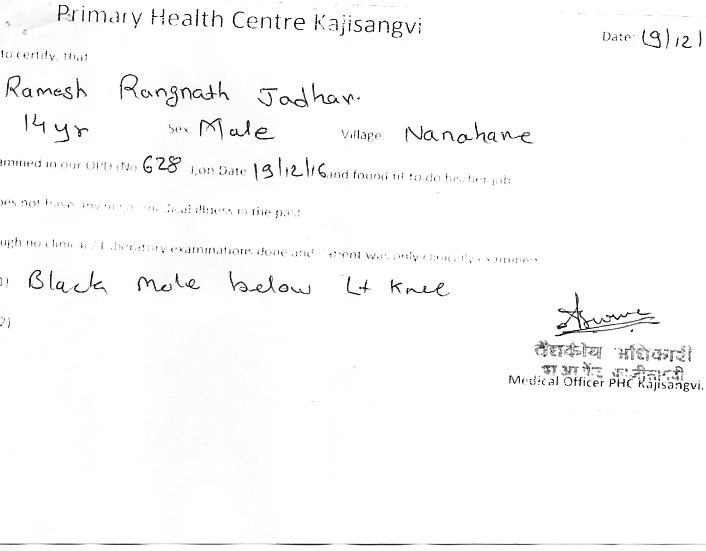 Primary Health Centre Kajisangvi
Date: 19/12/
to certify, that
Ramesh Rangnath Jadhav.
14 yr Sex. Male Village. Nanahane
amined in our OPD (No 628 ),on Date 19/12/16 and found fit to do his/her job
oes not have any medical illness in the past
ough no clinical / Laboratory examinations done and patient was only clinically examined
1) Black mole below Lt Knee
2)
वैद्यकीय अधिकारी
Medical Officer PHC Kajisangvi.